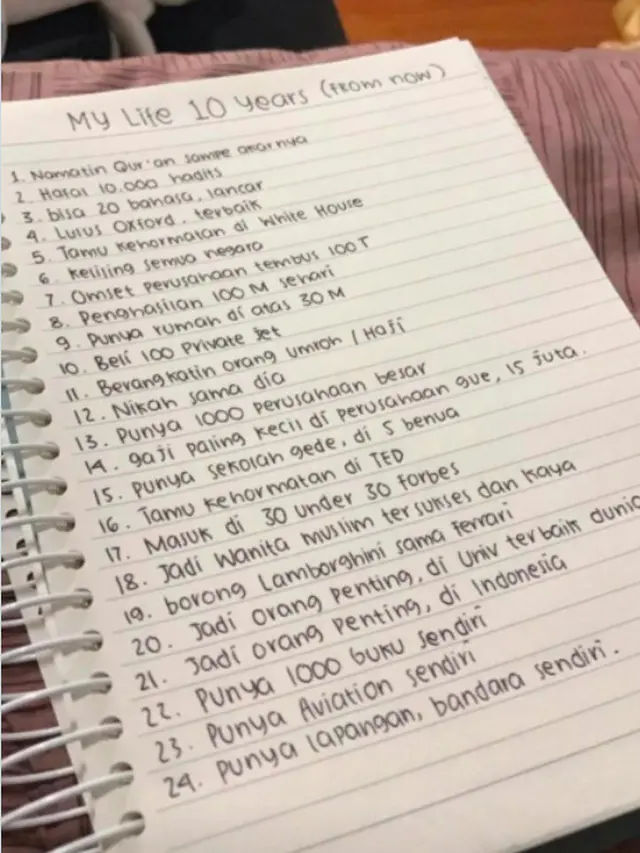 My Life 10 years (from now)
1. Namatin Qur'an sampe akarnya
2. Hafal 10.000 hadits
3. bisa 20 bahasa, lancar
4. Lulus Oxford, terbaik
5. Tamu kehormatan di White House
6. keliling semua negara
7. Omset perusahaan tembus 100T
8. Penghasilan 100 M sehari
9. Punya rumah di atas 30 M
10. Beli 100 Private jet
11. Berangkatin orang umroh / Haji
12. Nikah sama dia
13. Punya 1000 perusahaan besar
14. gaji paling kecil di perusahaan gue, 15 juta.
15. Punya sekolah gede, di 5 benua
16. Tamu kehormatan di TED
17. Masuk di 30 under 30 Forbes
18. Jadi wanita muslim tersukses dan kaya
19. borong Lamborghini sama Ferrari
20. Jadi orang penting, di Univ terbaik dunia
21. Jadi orang penting, di Indonesia
22. Punya 1000 buku sendiri
23. Punya Aviation sendiri
24. Punya lapangan, bandara sendiri.